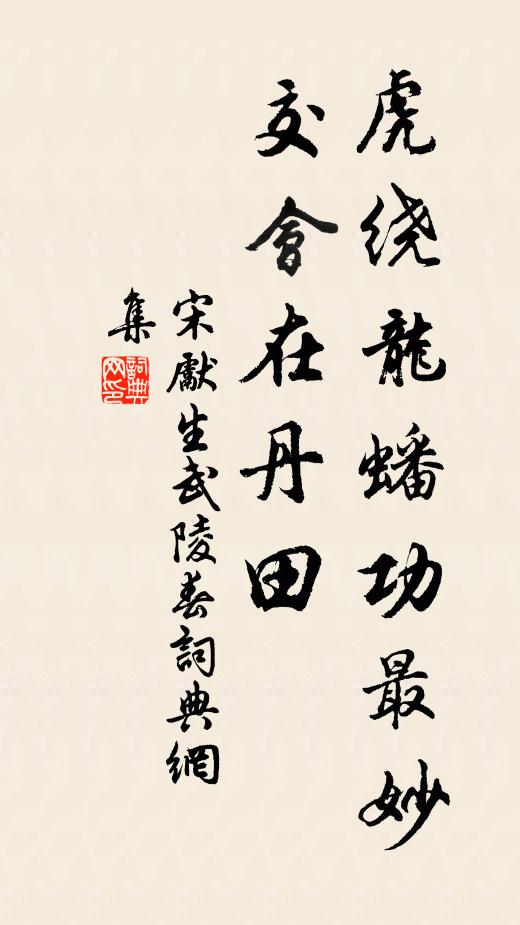 虎绕龍蟠功最妙
交會在丹田
宋獻生武陵春詞典網
集
詞典网印